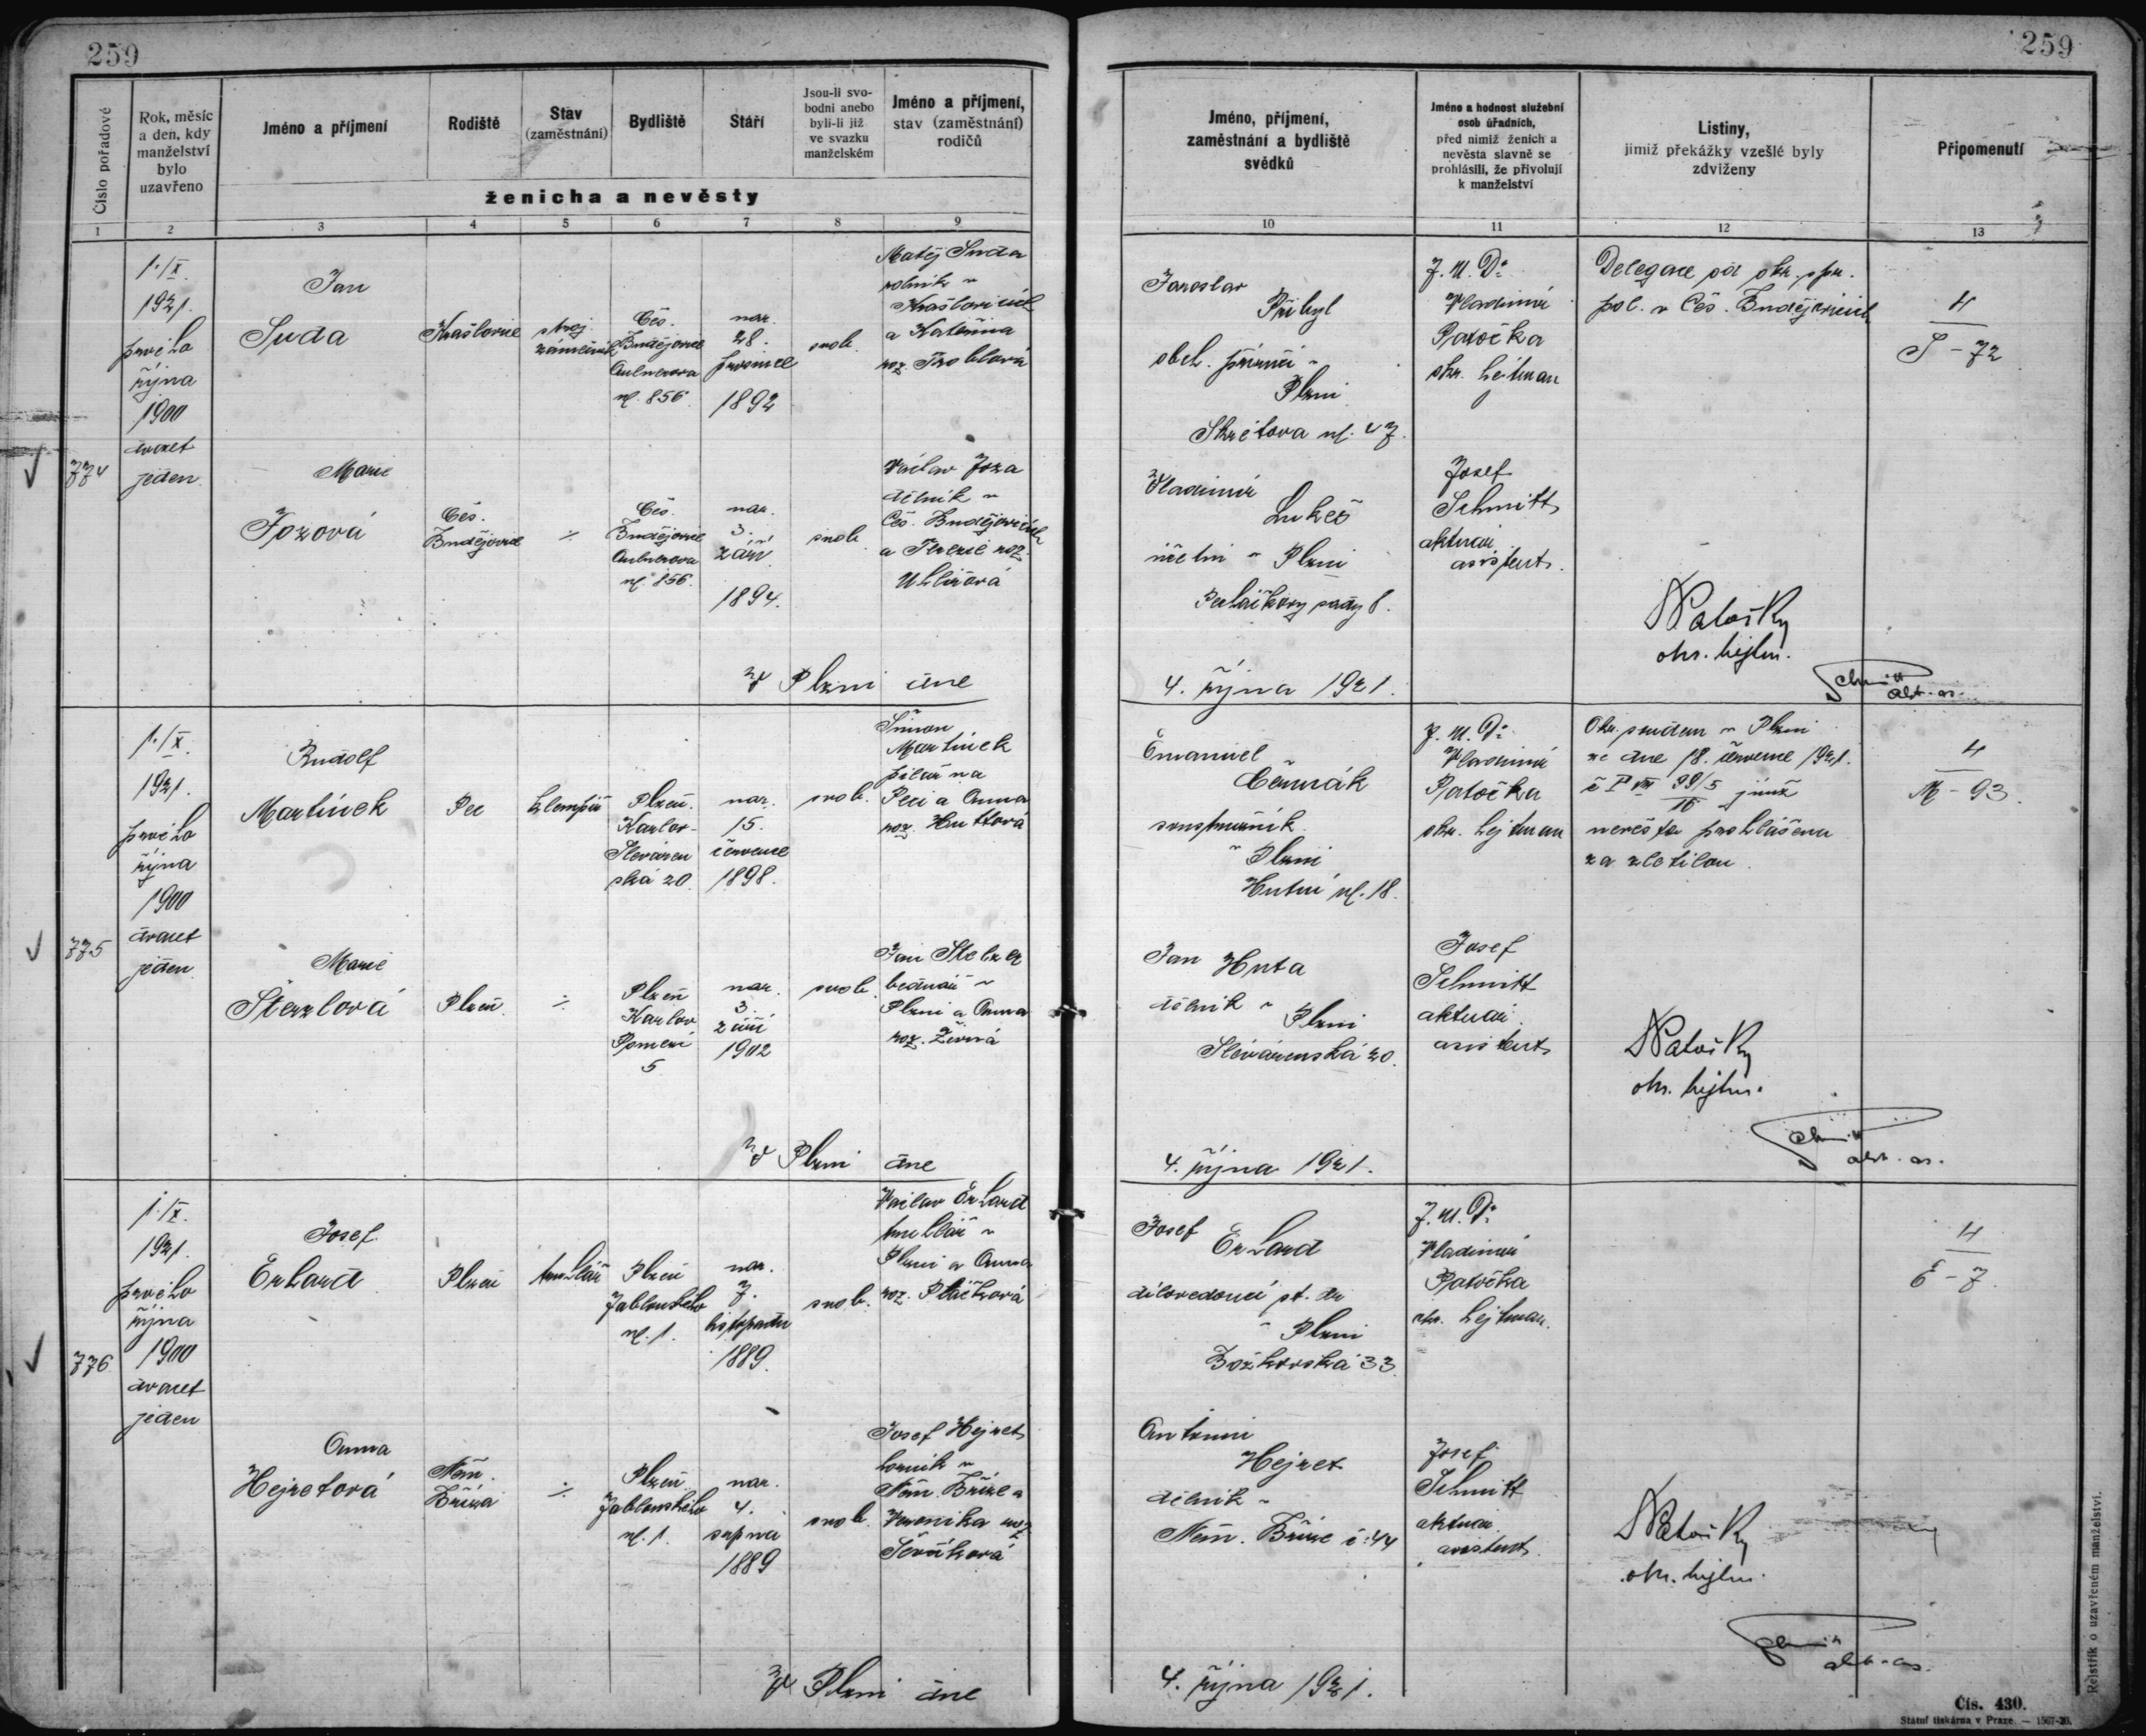 259
259
Číslo pořadové
Rok, měsíc
a den, kdy
manželství
bylo
uzavřeno
Jméno a příjmení
Rodiště
Stav
(zaměstnání)
Bydliště
Stáří
Jsou-li svo-
bodni anebo
byli-li již
ve svazku
manželském
Jméno a příjmení,
stav (zaměstnání)
rodičů
ženicha a nevěsty
1 2 3 4 5 6 7 8 9
Jméno, příjmení,
zaměstnání a bydliště
svědků
Jméno a hodnost služební
osob úřadních,
před nimiž ženich a
nevěsta slavně se
prohlásili, že přivolují
k manželství
Listiny,
jimiž překážky vzešlé byly
zdviženy
Připomenutí
10 11 12 13
774
1./X.
1921.
prvého
října
1900
dvacet
jeden.
Jan
Suda
Krašlovice
stroj.
zámečník
Čes.
Budějovice
ul. 856
nar.
28.
prosince
1892
svob.
Matěj Suda
rolník v
Krašlovicích
a Kateřina
roz.
Marie
Jozová
Čes.
Budějovice
÷
Čes.
Budějovice
ul. 856.
nar.
3.
září
1894.
svob.
Václav Joza
dělník v
Čes. Budějovicích
a Terezie roz.
Uhlířová
V Plzni dne
Jaroslav
Přibyl
obch. příručí v
Plzni
Skrétova ul. 47.
Vladimír
Lukeš
účetní v Plzni
sady 8.
4. října 1921.
J.U.Dr.
Vladimír
Patočka
okr. hejtman
Josef
Schmitt
aktuár.
asistent.
Delegace od okr. spr.
pol. v Čes. Budějovicích
Patočka
okr. hejtm.
Schmitt
akt. as.
4
S - 72
775
1./X.
1921.
prvého
října
1900
dvacet
jeden.
Rudolf
Martínek
Pec
klempíř
Plzeň.
Karlov-
Sléváren
ská 20.
nar.
15.
července
1898.
svob.
Šimon
Martínek
pilař na
Peci a Anna
roz. Huttová
Marie
Štenzlová
Plzeň.
÷
Plzeň
Karlov
Pomezí
5
nar.
3.
září
1902
svob.
Jan
bednář v
Plzni a Anna
roz. Živná
V Plzni dne
Emanuel
Čermák
soustružník
v Plzni
Hutní ul. 18.
Jan Huta
dělník v
Plzni
Slévárenská 20.
4. října 1921.
J.U.Dr.
Vladimír
Patočka
okr. hejtman
Josef
Schmitt
aktuár.
asistent
Okr. soudem v Plzni
ze dne 18. července 1921.
č P VII 99/5 jímž
16
nevěsta prohlášena
za zletilou.
Patočka
okr. hejtm.
Schmitt
akt. as.
4
M - 93.
776
1./X.
1921.
prvého
října
1900
dvacet
jeden
Josef
Erhard
Plzeň
truhlář
Plzeň
Jablonského
ul. 1.
nar.
7.
listopadu
1889.
svob.
Václav Erhard
truhlář v
Plzni a Anna
roz. Ptáčková
Anna
Hejretová
Něm.
Bříza
÷
Plzeň.
Jablonského
ul. 1.
nar.
4.
srpna
1889
svob.
Josef Hejret
horník v
Něm. Bříze a
Veronika roz.
V Plzni dne
Josef
Erhard
dílovedoucí st. dr.
v Plzni
Božkovská 33.
Antonín
Hejret
dělník v
Něm. Bříze č. 44
4. října 1921.
J.U.Dr.
Vladimír
Patočka
okr. hejtman.
Josef
Schmitt
aktuár.
asistent.
Patočka
okr. hejtm.
Schmitt
akt. as.
4
E - 7.
Rejstřík o uzavřeném manželství.
Čís. 430.
Státní tiskárna v Praze. — 1567-20.